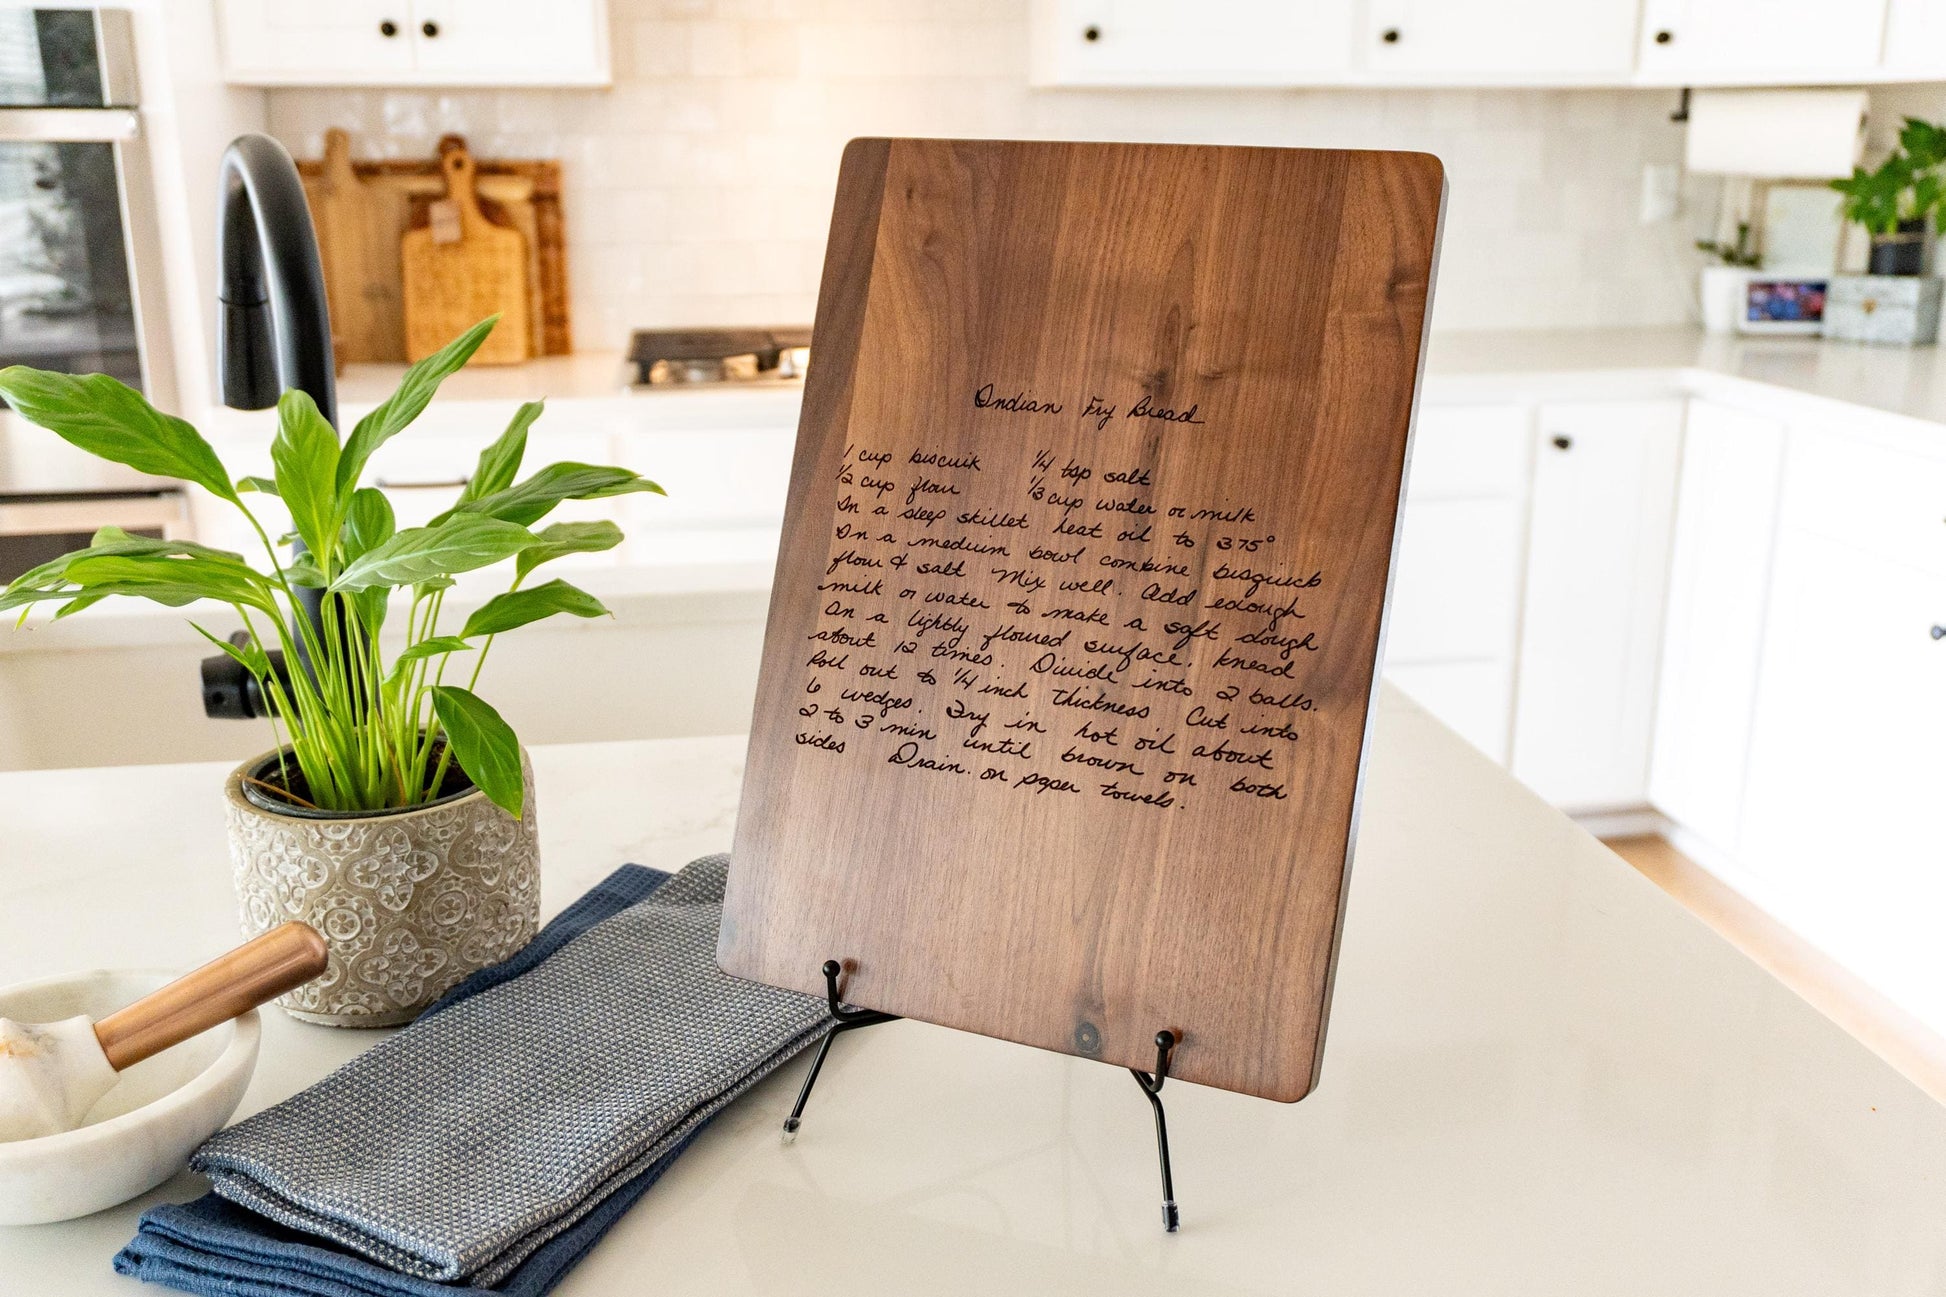 Indian Fry Bread
1 cup biscuik 1/4 tsp salt
1/2 cup flour 1/3 cup water or milk
In a deep skillet heat oil to 375°
In a medium bowl combine bisquick
flour & salt Mix well. Add enough
milk or water to make a soft dough
On a lightly floured surface, knead
about 12 times. Divide into 2 balls.
Roll out to 1/4 inch thickness Cut into
6 wedges. Fry in hot oil about
2 to 3 min until brown on both
sides Drain. on paper towels.